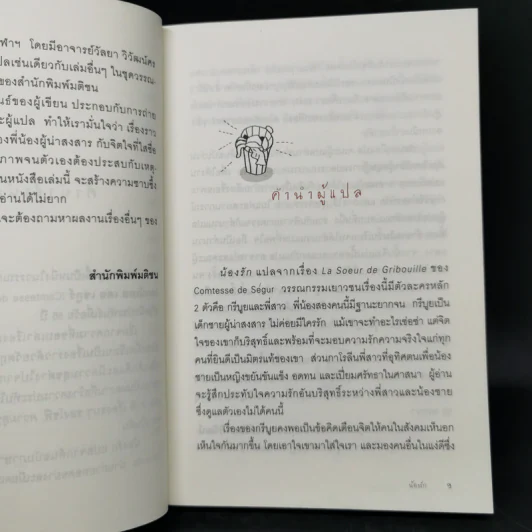 ฬาฯ โดยมีอาจารย์วัลยา วิวัฒน์ศร
ปลเช่นเดียวกับเล่มอื่นๆ ในชุดวรรณ-
ของสำนักพิมพ์มติชน
นธ์ของผู้เขียน ประกอบกับการถ่าย
ะผู้แปล ทำให้เรามั่นใจว่า เรื่องราว
องพี่น้องผู้น่าสงสาร กับจิตใจที่ใสซื่อ
ภาพจนตัวเองต้องประสบกับเหตุ-
นหนังสือเล่มนี้ จะสร้างความซาบซึ้ง
อ่านได้ไม่ยาก
จะต้องถามหาผลงานเรื่องอื่นๆ ของ
สำนักพิมพ์มติชน
คำนำผู้แปล
น้องรัก แปลจากเรื่อง La Soeur de Gribouille ของ
Comtesse de Ségur วรรณกรรมเยาวชนเรื่องนี้มีตัวละครหลัก
2 ตัวคือ กรีบูยและพี่สาว พี่น้องสองคนนี้มีฐานะยากจน กรีบูยเป็น
เด็กชายผู้น่าสงสาร ไม่ค่อยมีใครรัก แม้เขาจะทำอะไรเซ่อซ่า แต่จิต
ใจของเขาก็บริสุทธิ์และพร้อมที่จะมอบความรักความจริงใจแก่ทุก
คนที่ยินดีเป็นมิตรแท้ของเขา ส่วนกาโรลีนพี่สาวที่อุทิศตนเพื่อน้อง
ชายเป็นหญิงขยันขันแข็ง อดทน และเปี่ยมศรัทธาในศาสนา ผู้อ่าน
จะรู้สึกประทับใจความรักอันบริสุทธิ์ระหว่างพี่สาวและน้องชาย
ซึ่งดูแลตัวเองไม่ได้คนนี้
เรื่องของกรีบูยคงพอเป็นข้อคิดเตือนจิตให้คนในสังคมเห็นอก
เห็นใจกันมากขึ้น โดยเอาใจเขามาใส่ใจเรา และมองคนอื่นในแง่ดีซึ่ง
น้องรัก